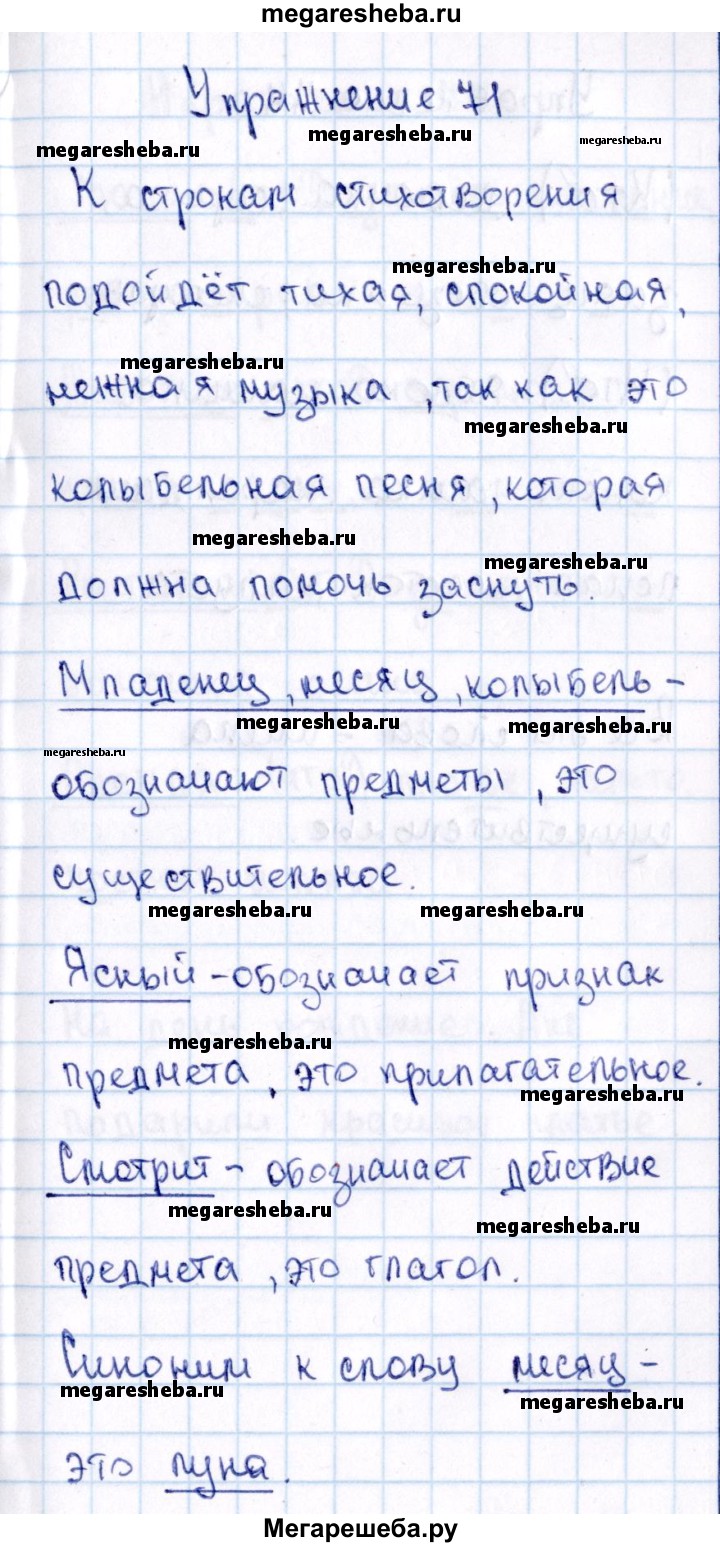 megaresheba.ru
Упражнение 71
megaresheba.ru
megaresheba.ru
megaresheba.ru
К строкам стихотворения
megaresheba.ru
подойдёт тихая, спокойная,
megaresheba.ru
нежная музыка, так как это
megaresheba.ru
колыбельная песня, которая
megaresheba.ru
megaresheba.ru
должна помочь заснуть.
Младенец, месяц, колыбель -
megaresheba.ru
megaresheba.ru
megaresheba.ru
обозначают предметы, это
существительное.
megaresheba.ru
megaresheba.ru
Ясный - обозначает признак
megaresheba.ru
предмета, это прилагательное.
megaresheba.ru
Смотрит - обозначает действие
megaresheba.ru
megaresheba.ru
предмета, это глагол.
Синоним к слову месяц -
megaresheba.ru
megaresheba.ru
это луна.
Мегарешеба.ру